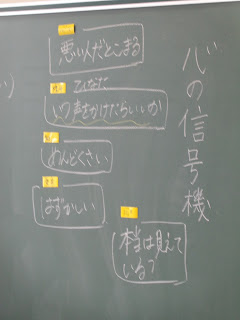 心の信号機
悪い人だとこまる
いつ声をかけたらいいか
めんどくさい
はずかしい
本当は見えて
いる?